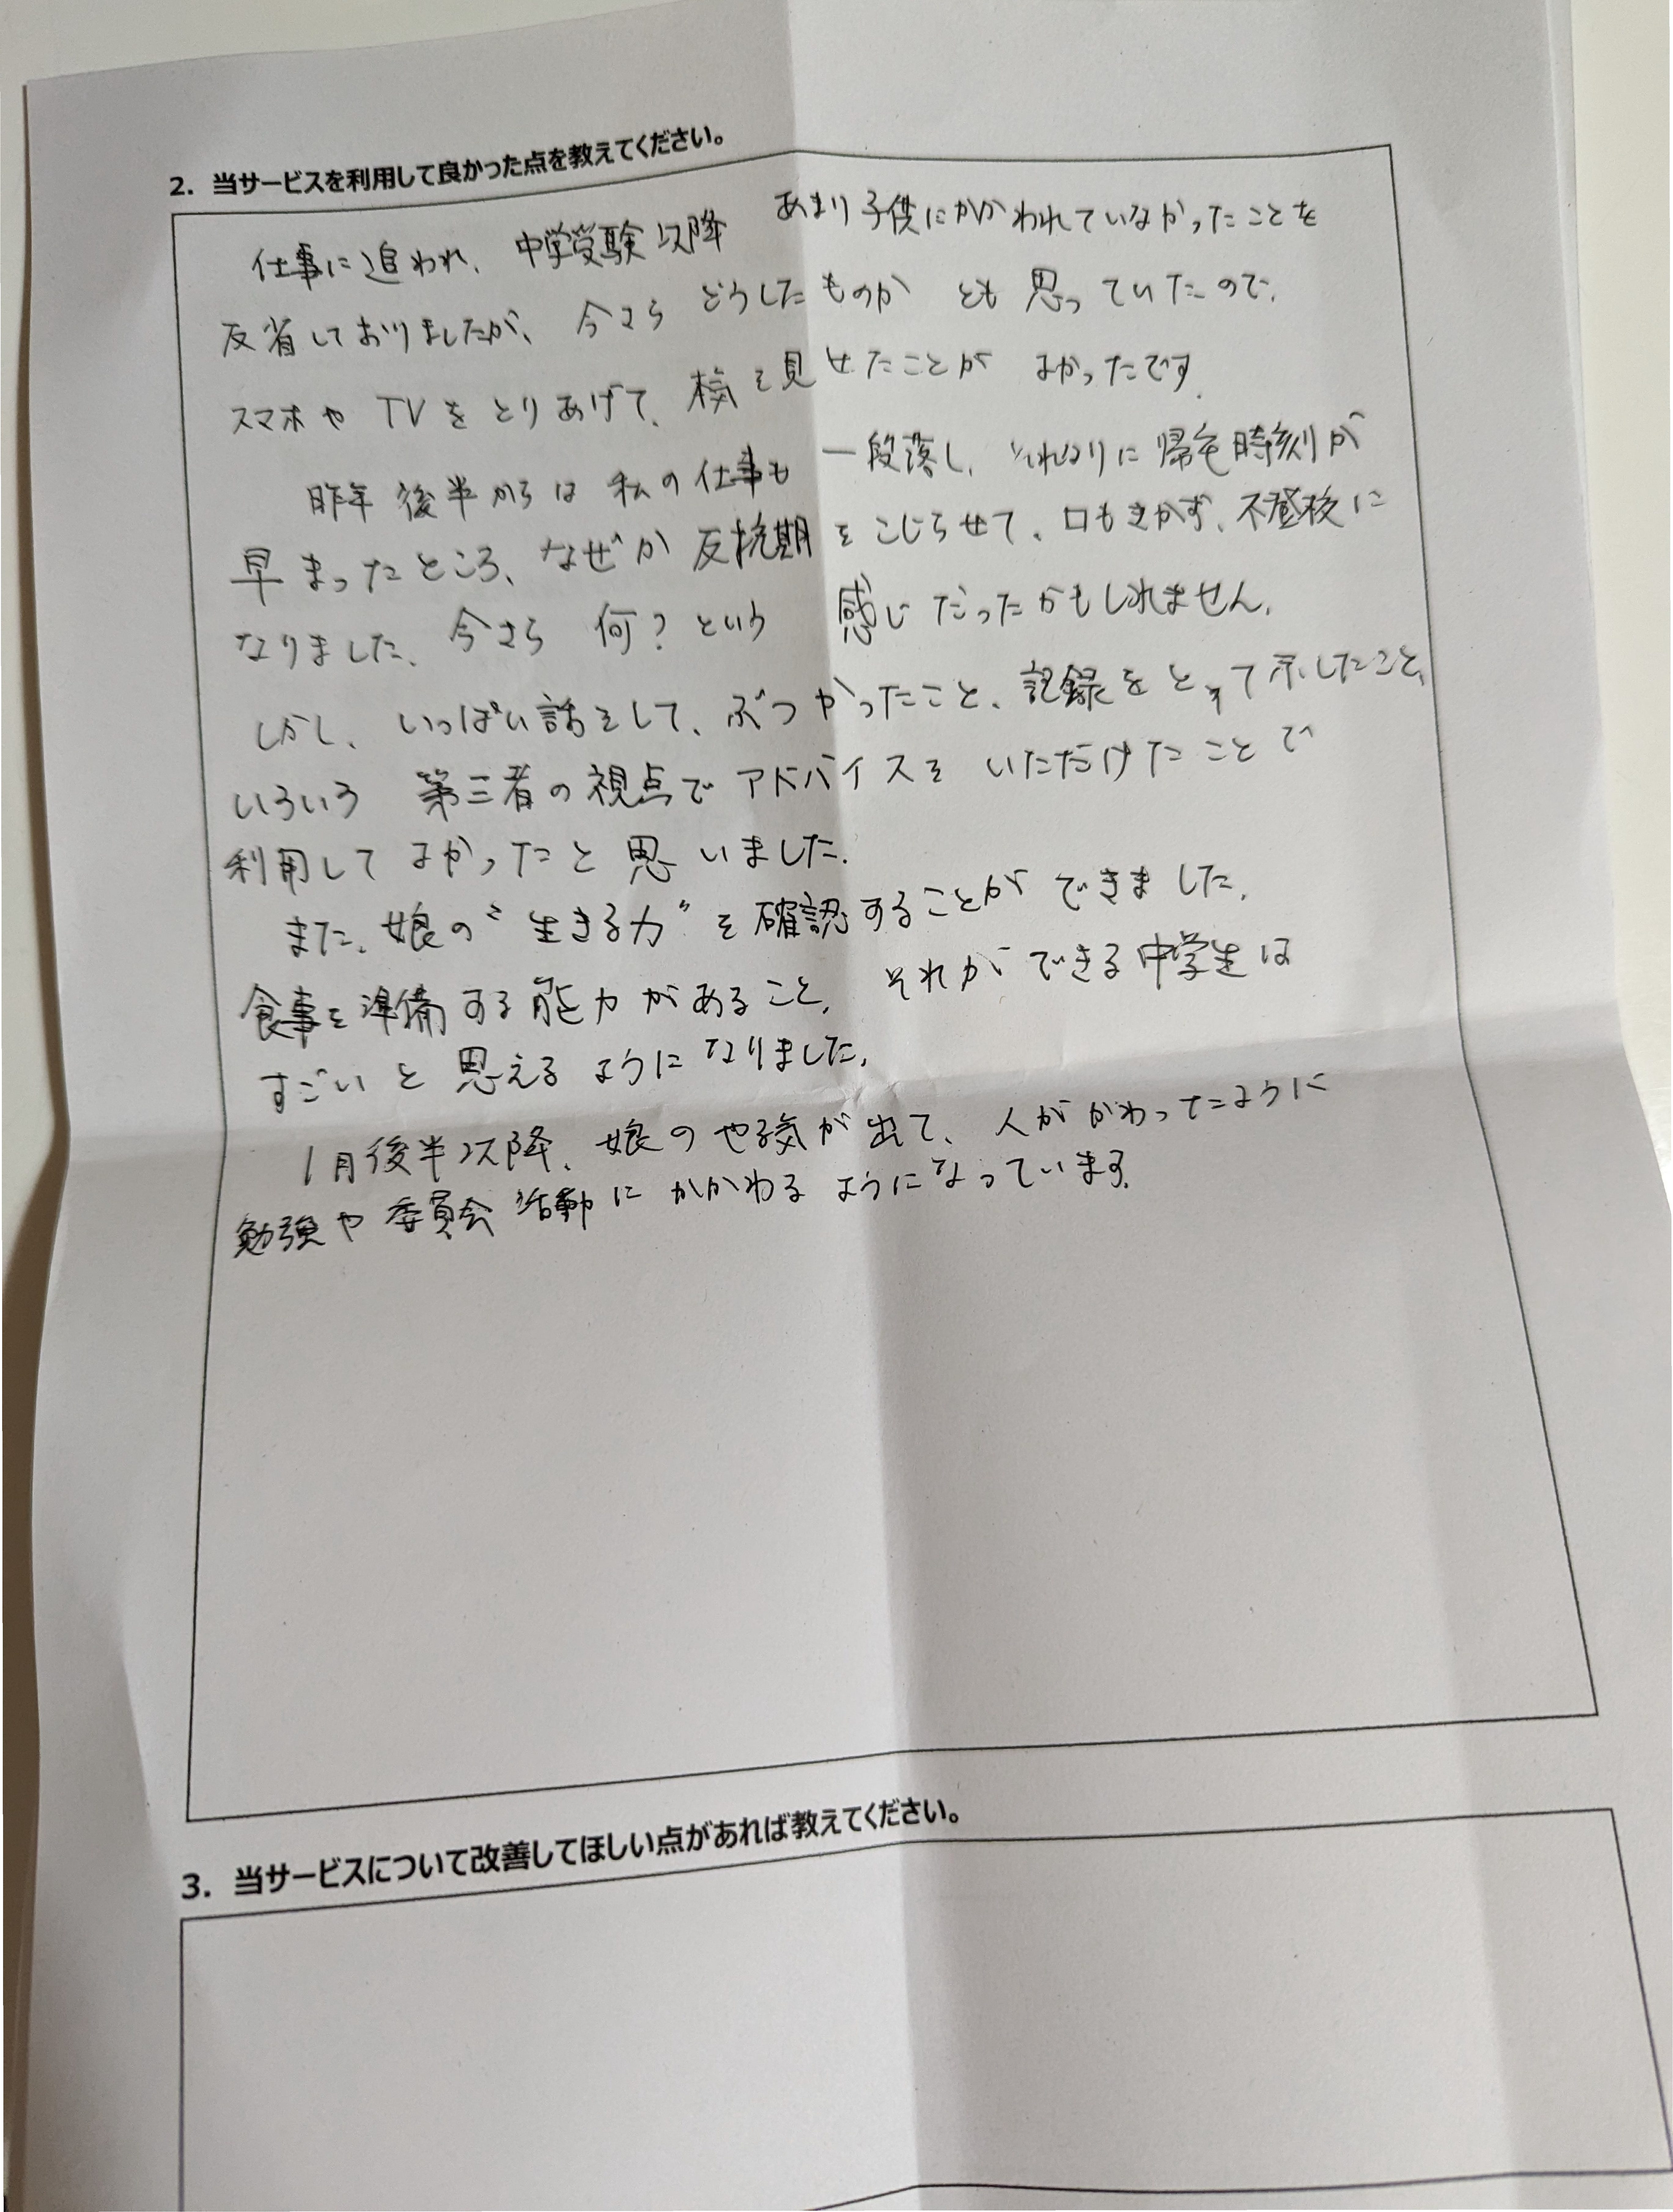 2. 当サービスを利用して良かった点を教えてください。
仕事に追われ、中学受験以降 あまり子供にかかわれていなかったことを
反省しておりましたが、今さら どうしたものか とも 思っていたので、
スマホや TVを とりあげて、本気を見せたことが よかったです。
昨年後半からは 私の仕事も 一段落し、それなりに帰宅時刻が
早まったところ、なぜか 反抗期をこじらせて、口もきかず、不登校に
なりました、今さら 何?という 感じだったかもしれません。
しかし、いっぱい話をして、ぶつかったこと、記録をとって示したこと、
いろいろ 第三者の視点でアドバイスを いただけたことで
利用して よかったと思いました。
また、娘の“生きる力”を確認することができました。
食事を準備する能力があること、それができる中学生は
すごいと思えるようになりました。
1月後半以降、娘のやる気が出て、人がかわったように
勉強や委員会活動にかかわるようになっています。
3. 当サービスについて改善してほしい点があれば教えてください。